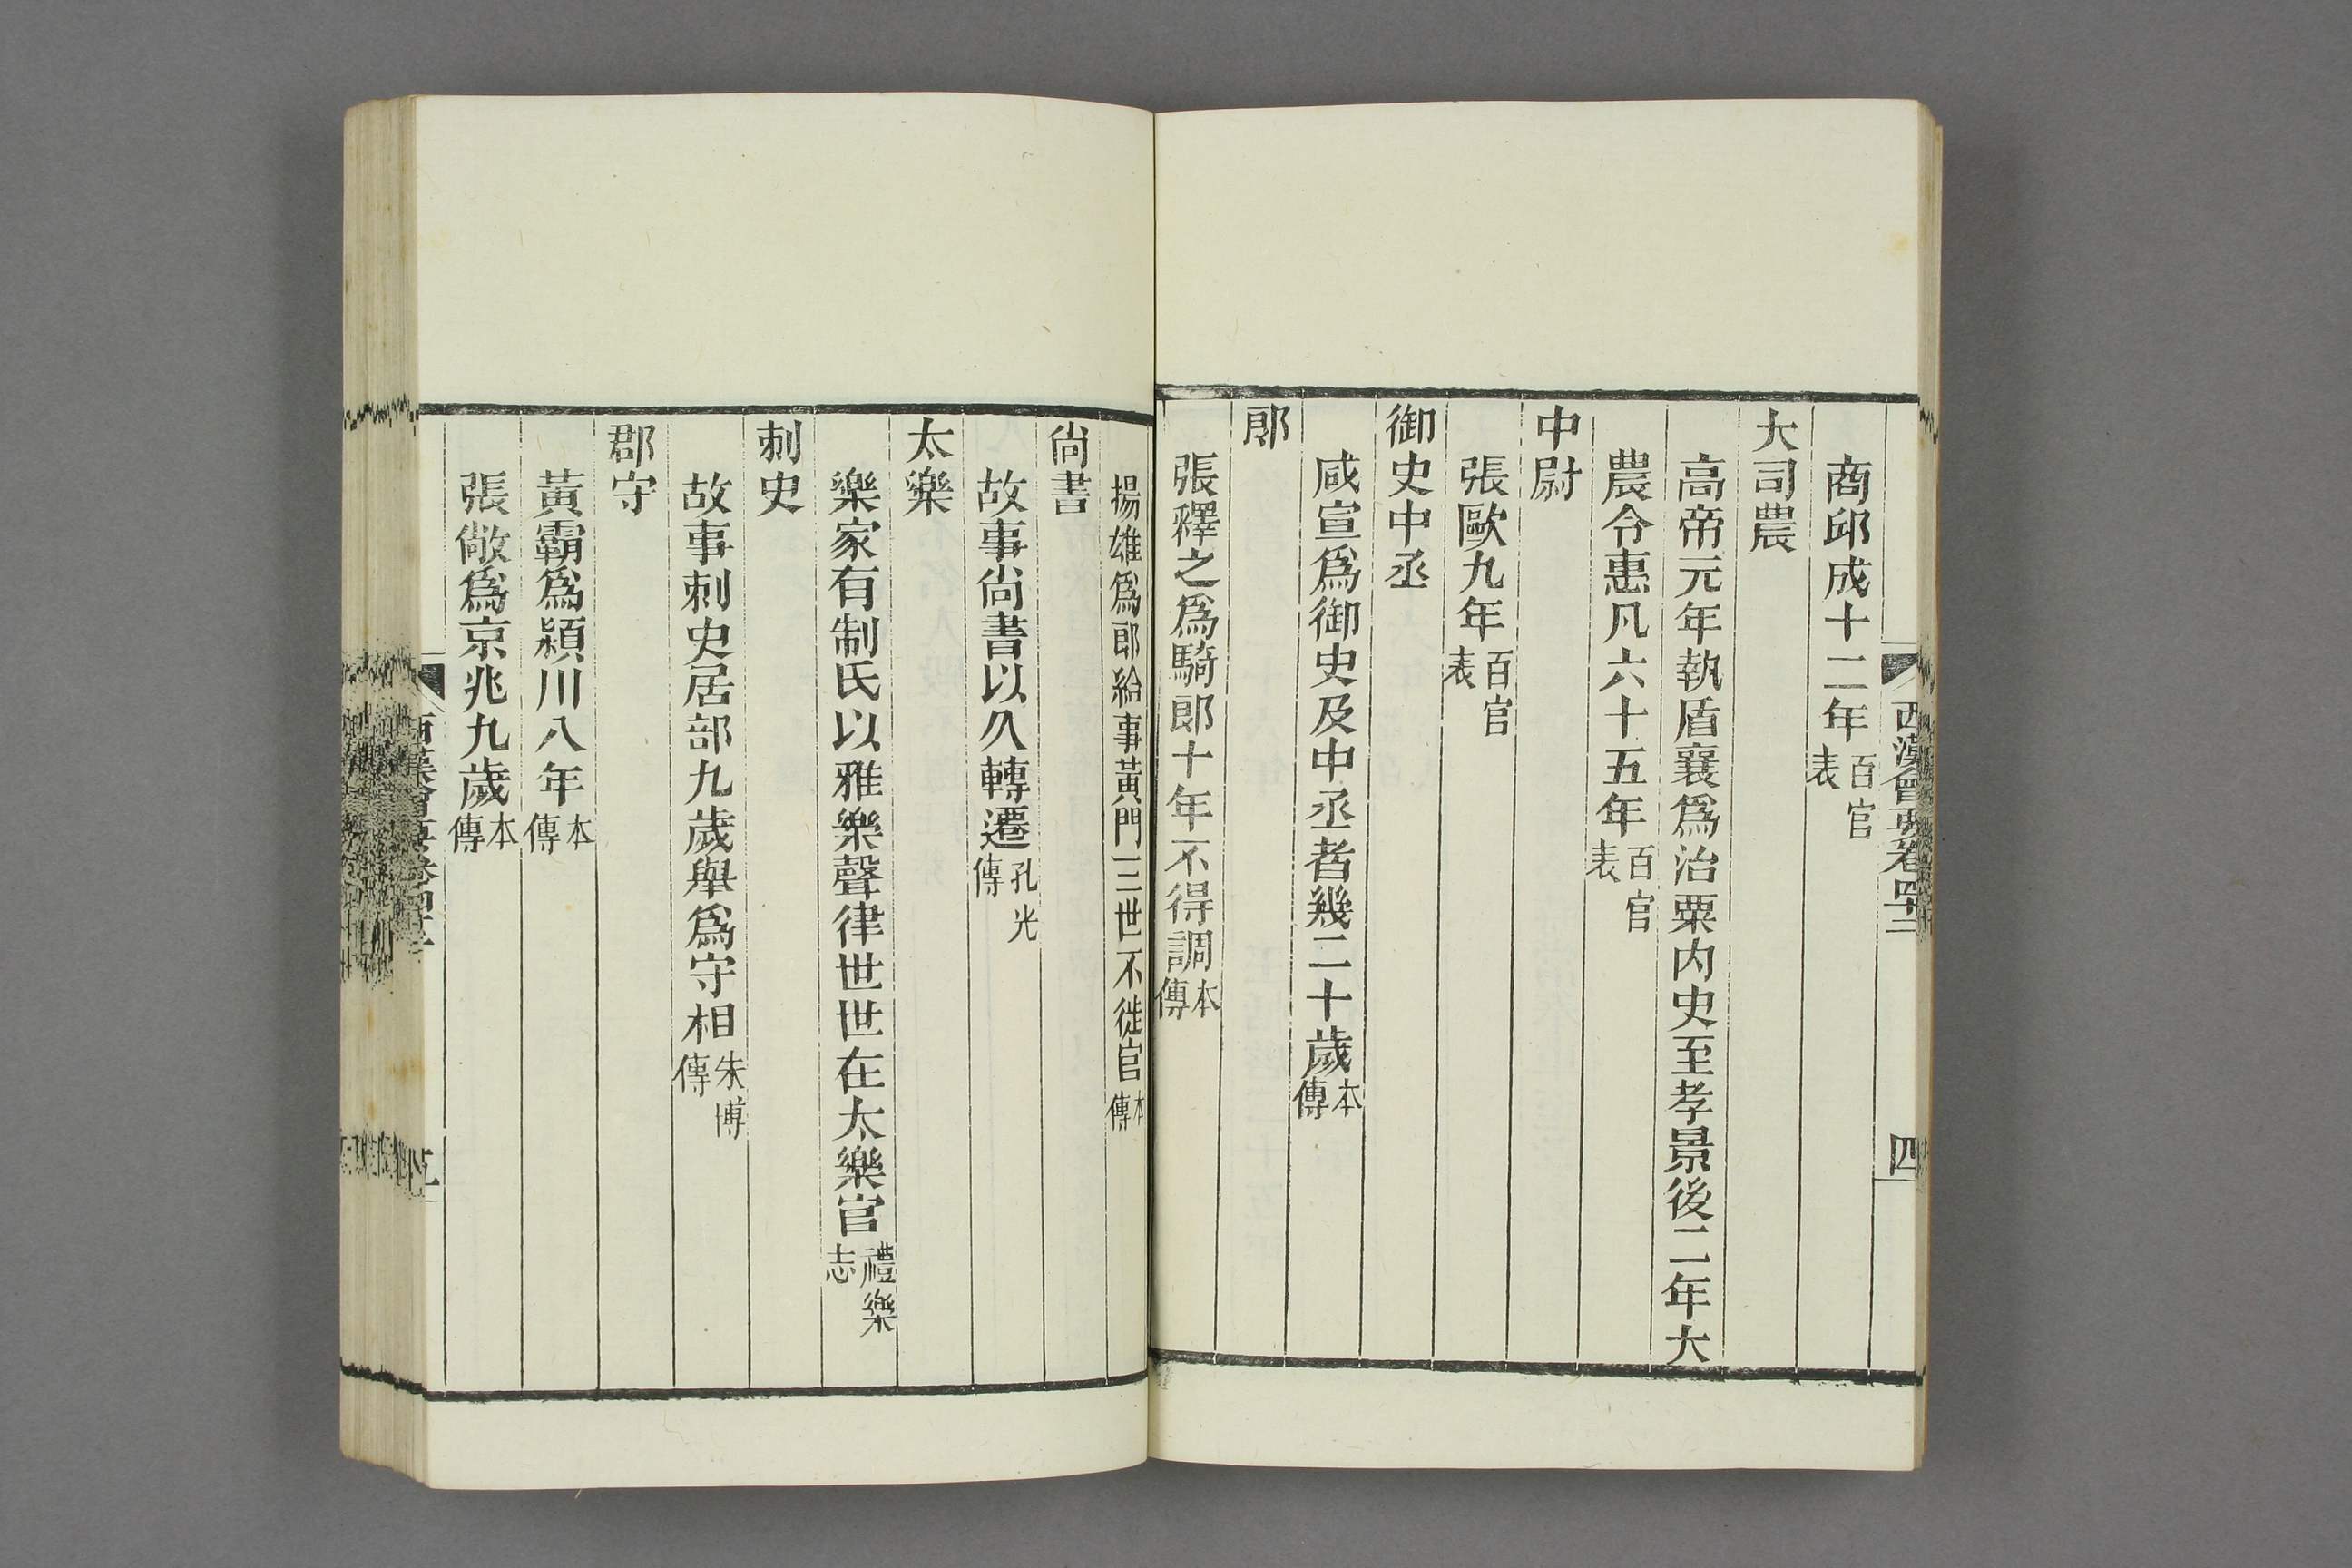 西漢會要卷四十二
四
商邱成十二年百官表
大司農
高帝元年執盾襄爲治粟內史至孝景後二年大
農令惠凡六十五年百官表
中尉
張歐九年百官表
御史中丞
咸宣爲御史及中丞者幾二十歲本傳
郎
張釋之爲騎郎十年不得調本傳
揚雄爲郎給事黃門三世不徙官本傳
尚書
故事尚書以久轉遷孔光傳
太樂
樂家有制氏以雅樂聲律世世在太樂官禮樂志
刺史
故事刺史居部九歲舉爲守相朱博傳
郡守
黃霸爲潁川八年本傳
張敞爲京兆九歲本傳